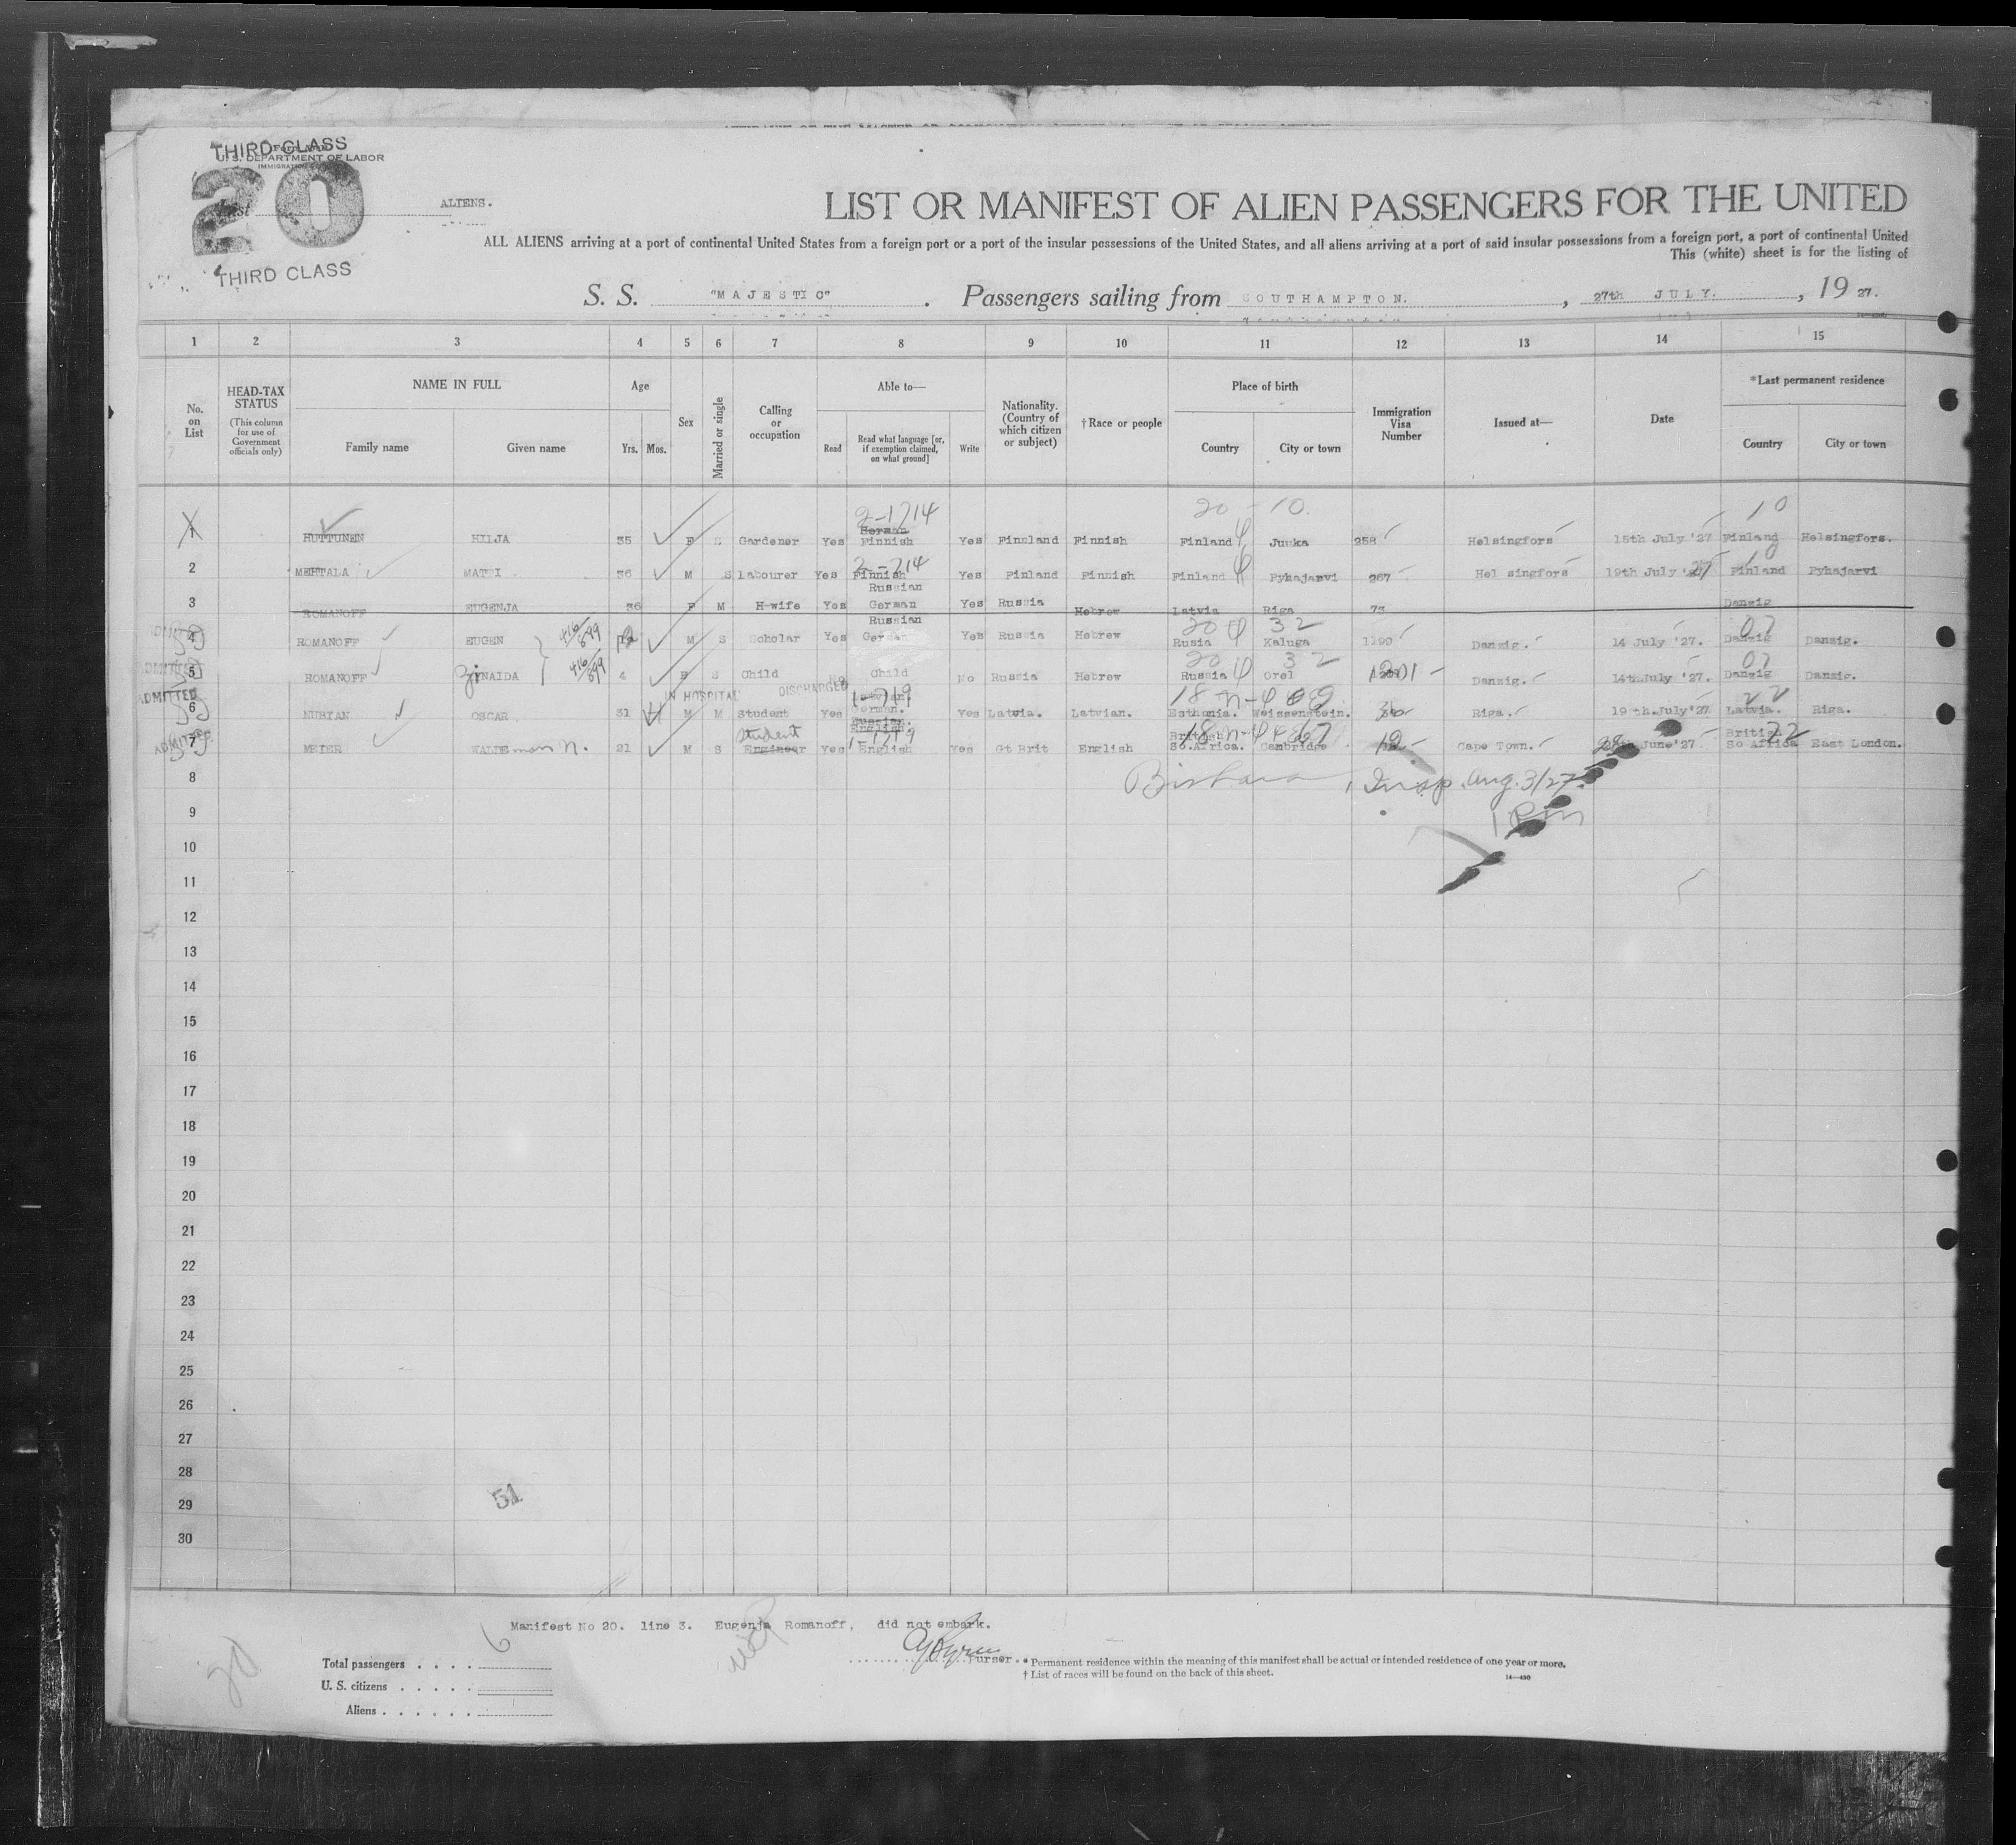 THIRD CLASS
U. S. DEPARTMENT OF LABOR
20
THIRD CLASS
ALIENS.
LIST OR MANIFEST OF ALIEN PASSENGERS FOR THE UNITED
ALL ALIENS arriving at a port of continental United States from a foreign port or a port of the insular possessions of the United States, and all aliens arriving at a port of said insular possessions from a foreign port, a port of continental United
This (white) sheet is for the listing of
S. S. "MAJESTIC". Passengers sailing from SOUTHAMPTON., 27th JULY., 1927.
1 2 3 4 5 6 7 8 9 10 11 12 13 14 15
No. on List
HEAD-TAX STATUS
(This column for use of Government officials only)
NAME IN FULL
Family name Given name
Age
Yrs. Mos.
Sex
Married or single
Calling or occupation
Able to—
Read
Read what language [or, if exemption claimed, on what ground]
Write
Nationality. (Country of which citizen or subject)
†Race or people
Place of birth
Country City or town
Immigration Visa Number
Issued at—
Date
*Last permanent residence
Country City or town
2-1714 20 - 10. 10
1 HUTTUNEN HILJA 35 F S Gardener Yes German Finnish Yes Finnland Finnish Finland Juuka 258 Helsingfors 15th July '27 Finland Helsingfors.
2 MEHTALA MATTI 36 M S Labourer Yes Finnish Yes Finland Finnish Finland Pyhajarvi 267 Helsingfors 19th July '27 Finland Pyhajarvi
3 ROMANOFF EUGENJA 36 F M H-wife Yes Russian German Yes Russia Hebrew Latvia Riga 73 Danzig
4 ROMANOFF EUGEN 416/599 12 M S Scholar Yes Russian German Yes Russia Hebrew Rusia Kaluga 1199 Danzig. 14 July '27. Danzig Danzig.
ADMITTED
5 ROMANOFF ZINAIDA 416/599 4 F S Child No Child No Russia Hebrew Russia Orel 1201 Danzig. 14th July '27. Danzig Danzig.
ADMITTED IN HOSPITAL DISCHARGED
6 OSCAR 31 M M Student Yes German. Russian. Yes Latvia. Latvian. Esthonia. Weissenstein. Riga. 19th July '27 Latvia. Riga.
ADMITTED
7 MEIER 21 M S Student Engineer Yes English Yes Gt Brit English British So.Africa. Cambridge 12 Cape Town. 28th June '27 British So Africa East London.
8 Insp. Aug. 3/27
9
10
11
12
13
14
15
16
17
18
19
20
21
22
23
24
25
26
27
28
29
51
30
Manifest No 20. line 3. Eugenja Romanoff, did not embark.
Purser.
Total passengers
U. S. citizens
Aliens
20
* Permanent residence within the meaning of this manifest shall be actual or intended residence of one year or more.
† List of races will be found on the back of this sheet.
14—430